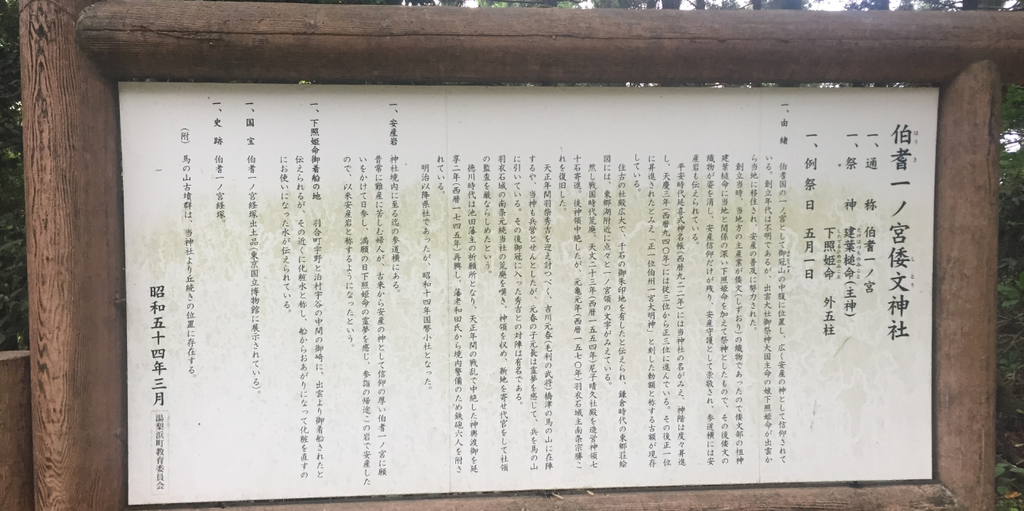 伯耆一ノ宮倭文神社
ほうき
しとり
一、通　称　伯耆一ノ宮
一、祭　神　建葉槌命(主神)
たけはづちのみこと
下照姫命　外五柱
一、例祭日　五月一日
一、由緒　伯耆国の一ノ宮として御冠山の中腹に位置し、広く安産の神として信仰されて
いる。創立年代は不明であるが、出雲大社御祭神大国主命の娘下照姫命が出雲か
ら当地に移住され、安産の普及に努力された。
創立当時、当地方の主産業が倭文(しずおり)の織物であったので倭文部の祖神
建葉槌命に当地と関係の深い下照姫命を加えて祭神としたもので、その後倭文の
織物が姿を消し、安産信仰だけが残り、安産守護として崇敬され、参道横には安
産岩も伝えられている。
平安時代延喜式神名帳(西暦九二二年)には当神社の名がみえ、神階は度々昇進
し、天慶三年(西暦九四〇年)には従三位から正三位に進んでいる。その後正一位
に昇進されたとみえ「正一位伯州一宮大明神」と刻した勅額と称する古額が現存
している。
往古の社殿広大で、千石の御朱印地を有したと伝えられ、鎌倉時代の東郷荘絵
図には、東郷湖附近に点々と一ノ宮領の文字がみえている。
然し戦国時代荒廃、天文二十三年(西暦一五五四年)尼子晴久社殿を造営神領七
十石寄進、後神領中絶したが、元亀元年(西暦一五七〇年)羽衣石城主南条宗勝こ
れを復旧した。
天正年間羽柴秀吉を迎え討つべく、吉川元春(毛利の武将)橋津の馬の山に在陣
するや、当神も兵営とせんとしたが、元春の子元長は霊夢を感じて、兵を馬の山
に引いている。その後御冠に入った秀吉との対陣は有名である。
羽衣石城の南条元続当社の荒廃を嘆き、神領を収め、新地を寄せ代官をして社領
の監査を厳ならしめたという。
徳川時代は池田藩主の祈願所となり、天正年間の戦乱で中絶した神輿渡御を延
享二年(西暦一七四五年)再興し、藩老和田氏から境内警備のため鉄砲六人を附さ
れている。
明治以降県社であったが、昭和十四年国幣小社となった。
一、安産岩　神社境内に至る迄の参道横にある。
昔常に難産に苦しむ婦人が、古来から安産の神として信仰の厚い伯耆一ノ宮に願
いをかけて日参し、満願の日下照姫命の霊夢を感じ、参詣の帰途この岩で安産した
ので、以来安産岩と称するようになったという。
一、下照姫命御着船の地　羽合町宇野と泊村宇谷の中間の御崎に、出雲より御着船されたと
伝えられるが、その近くに化粧水と称し、船からおあがりになって化粧を直すの
にお使いになった水が伝えられている。
一、国宝　伯耆一ノ宮経塚出土品(東京国立博物館に展示されている)
一、史跡　伯耆一ノ宮経塚。
(附)　馬の山古墳群は、当神社より丘続きの位置に存在する。
昭和五十四年三月
湯梨浜町教育委員会